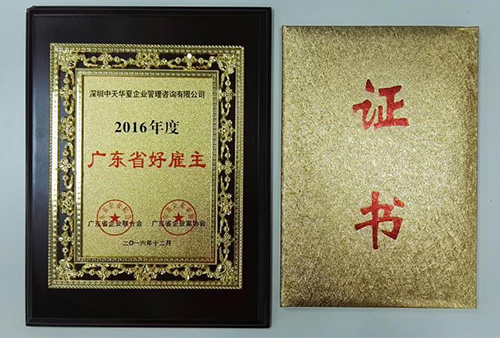 深圳中天华夏企业管理咨询有限公司
2016年度
广东省好雇主
广东省企业联合会 广东省企业家协会
二〇一六年十二月
证
书